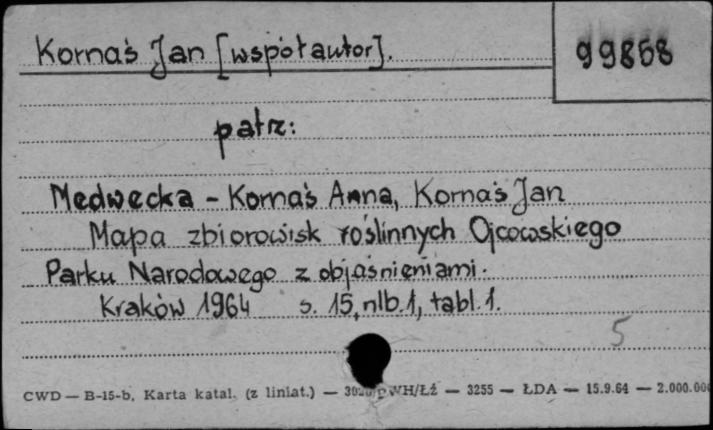 Kornaś Jan [współautor].
99868
patrz:
Medwecka - Kornaś Anna, Kornaś Jan
Mapa zbiorowisk roślinnych Ojcowskiego
Parku Narodowego z objaśnieniami.
Kraków 1964 s. 15, nlb. 1, tabl. 1.
5
CWD — B-15-b, Karta katal. (z liniat.) — WH/ŁŻ — 3255 — ŁDA — 15.9.64 — 2.000.00